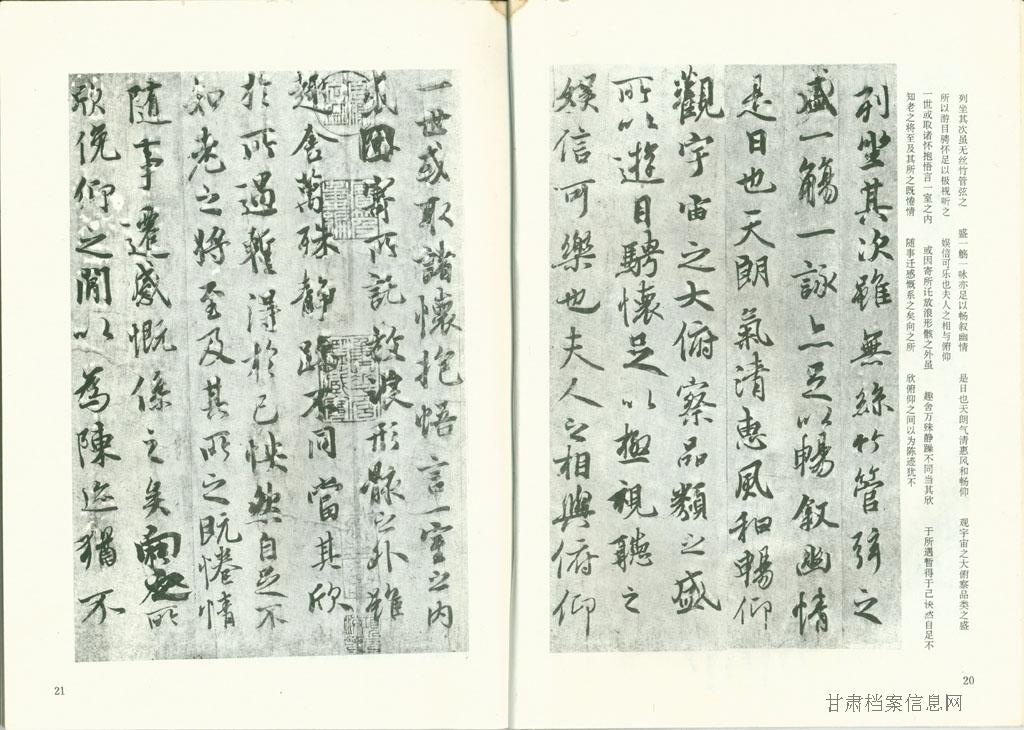 列坐其次虽无丝竹管弦之　盛一觞一咏亦足以畅叙幽情　是日也天朗气清惠风和畅仰　观宇宙之大俯察品类之盛
所以游目骋怀足以极视听之　娱信可乐也夫人之相与俯仰
一世或取诸怀抱悟言一室之内　或因寄所讬放浪形骸之外虽　趣舍万殊静躁不同当其欣　于所遇暂得于己快然自足不
知老之将至及其所之既惓情　随事迁感慨系之矣向之所　欣俯仰之间以为陈迹犹不
列坐其次雖無絲竹管弦之
盛一觴一詠亦足以暢叙幽情
是日也天朗氣清惠風和暢仰
觀宇宙之大俯察品類之盛
所以遊目騁懷足以極視聽之
娛信可樂也夫人之相與俯仰
20
一世或取諸懷抱悟言一室之内
或因寄所託放浪形骸之外雖
趣舍萬殊静躁不同當其欣
於所遇暫得於己怏然自足不
知老之將至及其所之既惓情
隨事遷感慨係之矣向之所
欣俛仰之閒以爲陳迹猶不
21
甘肃档案信息网